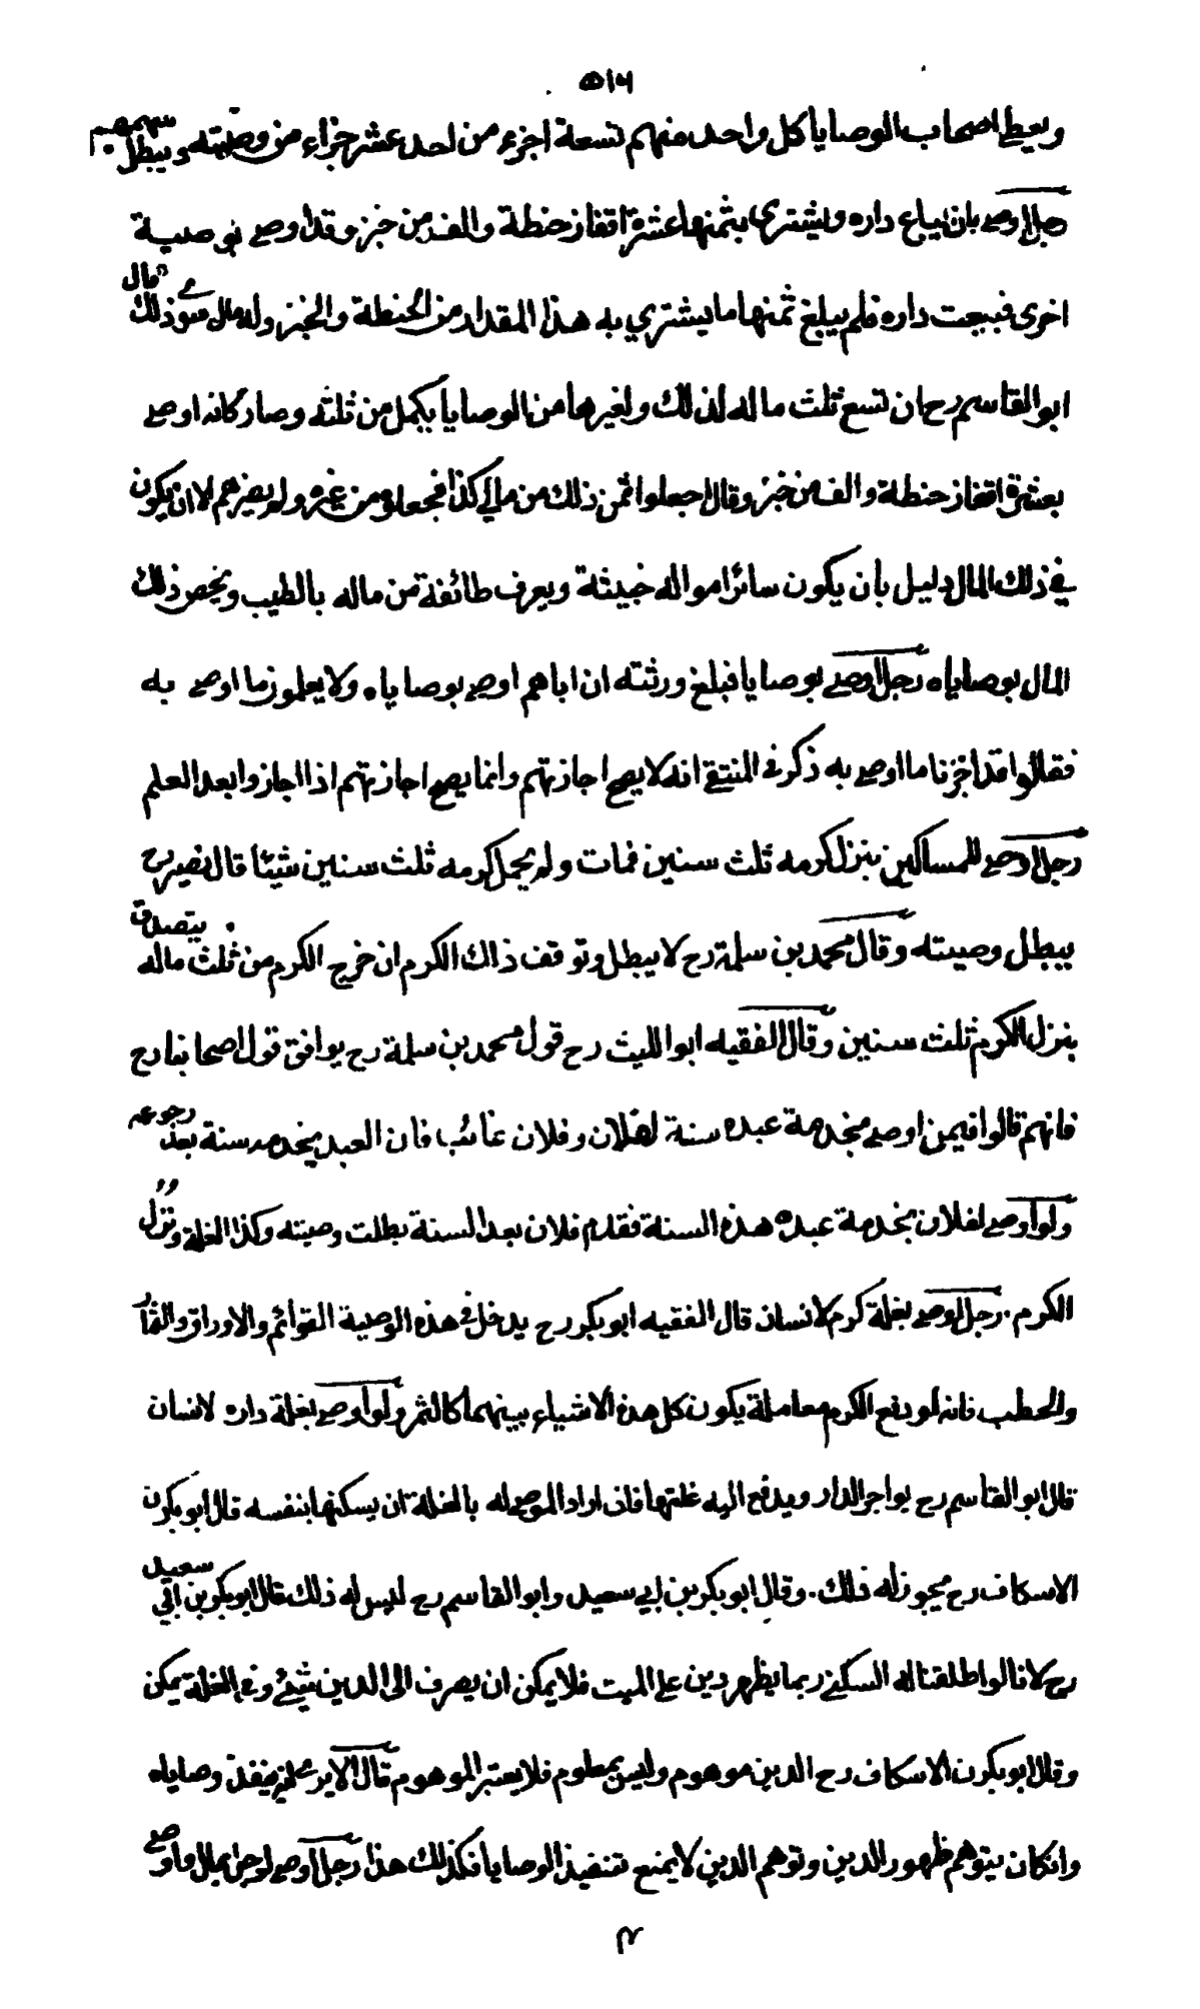 ٥١٦
ويعطى اصحاب الوصايا كل واحد منهم تسعة اجزء من احد عشر جزاء من وصيته ويبطل سهمهم
رجل اوصى بان يباع داره ويشترى بثمنها عشرة اقفاز حنطة والف من خبز وقد اوصى بوصية
اخرى فبيعت داره فلم يبلغ ثمنها ما يشتري به هذا المقدار من الحنطة والخبز وله مال سوى ذلك قال
ابو القاسم رح ان تسع ثلث ماله لذلك ولغيرها من الوصايا يكمل من ثلثه وصار كانه اوصى
بعشرة اقفاز حنطة والف من خبز وقال اجعلوا ثمن ذلك من مالي كذا فجعلوه من غيره ولم يضرهم الا ان يكون
في ذلك المال دليل بان يكون سائر امواله خبيثة ويعرف طائفة من ماله بالطيب ويخص ذلك
المال بوصاياه رجل اوصى بوصايا فبلغ ورثته ان اباهم اوصى بوصاياه ولا يعلمون ما اوصى به
فقالوا قد اجزنا ما اوصى به ذكر في المنتقى انه لا يصح اجازتهم وانما يصح اجازتهم اذا اجازوا بعد العلم
رجل اوصى للمساكين بنزل كرمه ثلث سنين فمات ولم يحمل كرمه ثلث سنين شيئا قال نصير رح
يبطل وصيته وقال محمد بن سلمة رح لا يبطل وتوقف ذلك الكرم ان خرج الكرم من ثلث ماله يتصدق
بنزل الكرم ثلث سنين وقال الفقيه ابو الليث رح قول محمد بن سلمة رح يوافق قول اصحابنا رح
فانهم قالوا فيمن اوصى بخدمة عبده سنة لفلان وفلان غائب فان العبد يخدمه سنة بعد رجوعه
ولو اوصى لفلان بخدمة عبده هذه السنة فقدم فلان بعد السنة بطلت وصيته وكذا الغلة ونزل
الكرم . رجل اوصى بغلة كرم لانسان قال الفقيه ابو بكر رح يدخل في هذه الوصية القوائم والاوراق والثمار
والحطب فانه لو دفع الكرم معاملة يكون كل هذه الاشياء بينهما كالثمر ولو اوصى بغلة داره لانسان
قال ابو القاسم رح يواجر الدار ويدفع اليه غلتها فان اراد الموصى له بالغلة ان يسكنها بنفسه قال ابو بكر
الاسكاف رح يجوز له ذلك . وقال ابو بكر بن ابي سعيد وابو القاسم رح ليس له ذلك قال ابو بكر بن ابي سعيد
رح لانا لو اطلقنا له السكنى ربما يظهر دين على الميت فلا يمكن ان يصرف الى الدين شيئ وفي الغلة يمكن
وقال ابو بكر الاسكاف رح الدين موهوم وليس بمعلوم فلا يعتبر الموهوم قال الا يرى ينفذ وصاياه
وان كان يتوهم ظهور الدين وتوهم الدين لا يمنع تنفيذ الوصايا فكذلك هذا رجل اوصى لرجل بمال واوصى